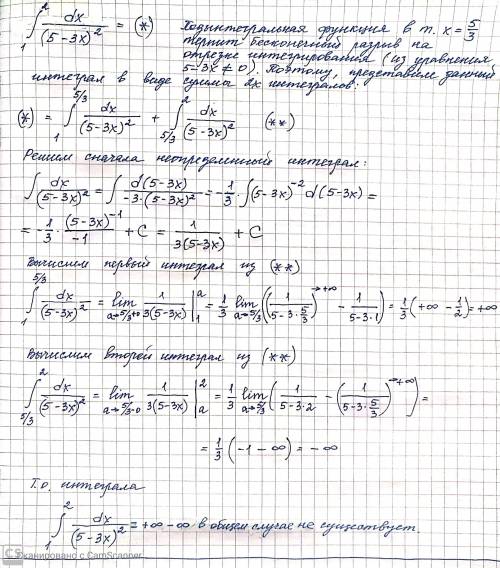 ∫₁² dx/(5-3x)² = (*) Подинтегральная функция в т. x = 5/3
терпит бесконечный разрыв на
отрезке интегрирования (из уравнения
5-3x ≠ 0). Поэтому, представим данный
интеграл в виде суммы 2х интегралов:
(*) = ∫₁^{5/3} dx/(5-3x)² + ∫_{5/3}² dx/(5-3x)² (**)
Решим сначала неопределенный интеграл:
∫ dx/(5-3x)² = ∫ d(5-3x)/(-3·(5-3x)²) = -1/3 ∫ (5-3x)⁻² d(5-3x) =
= -1/3 · (5-3x)⁻¹/(-1) + C = 1/(3(5-3x)) + C
Вычислим первый интеграл из (**)
∫₁^{5/3} dx/(5-3x)² = lim_{a→5/3+0} 1/(3(5-3x)) |₁^a = 1/3 lim_{a→5/3} ((1/(5-3·5/3))^{→+∞} - 1/(5-3·1)) = 1/3 (+∞ - 1/2) = +∞
Вычислим второй интеграл из (**)
∫_{5/3}² dx/(5-3x)² = lim_{a→5/3-0} 1/(3(5-3x)) |_a² = 1/3 lim_{a→5/3} (1/(5-3·2) - (1/(5-3·5/3))^{→+∞}) =
= 1/3 (-1 - ∞) = -∞
Т.о. интеграла
∫₁² dx/(5-3x)² = +∞ - ∞ в общем случае не существует.
CS Сканировано с CamScanner